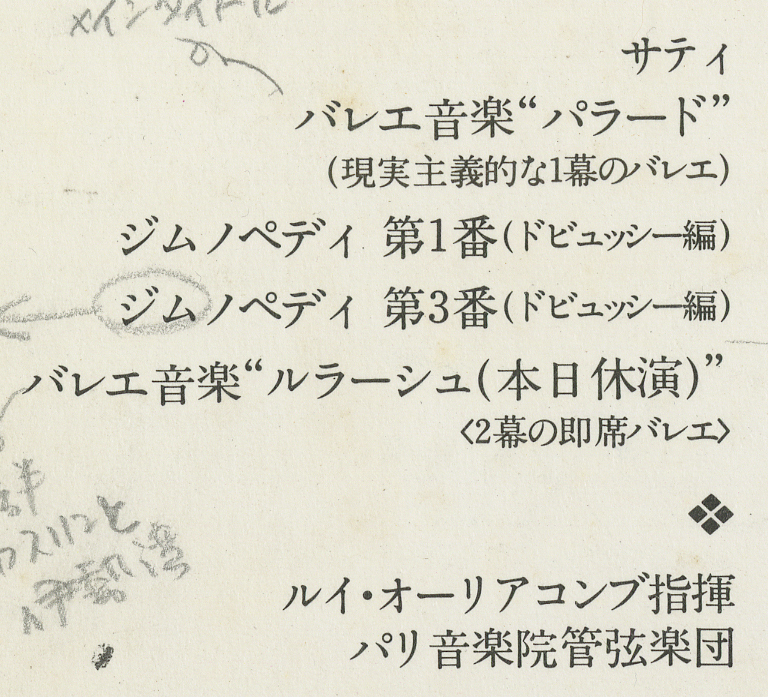 メインタイトル
サティ
バレエ音楽“パラード”
(現実主義的な1幕のバレエ)
ジムノペディ 第1番(ドビュッシー編)
ジムノペディ 第3番(ドビュッシー編)
バレエ音楽“ルラーシュ(本日休演)”
〈2幕の即席バレエ〉
と
伊勢湾
ルイ・オーリアコンブ指揮
パリ音楽院管弦楽団